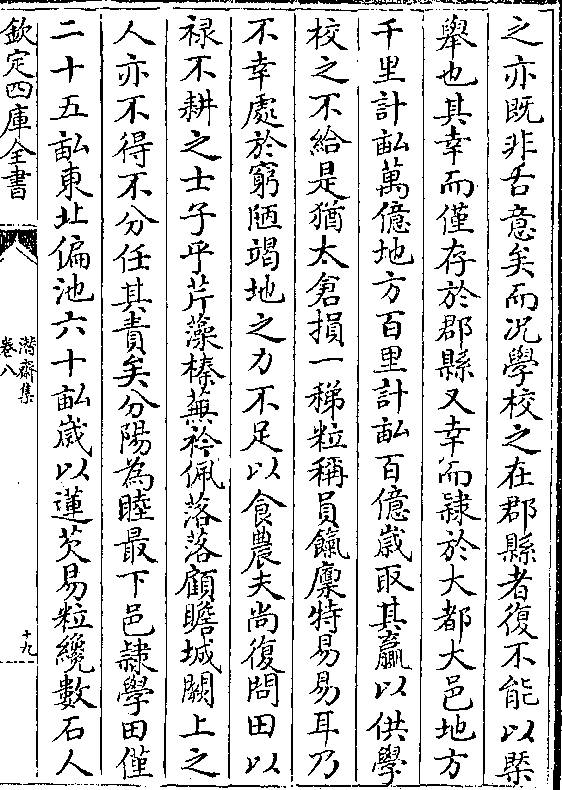 之亦既非古意矣而况學校之在郡縣者復不能以槩
舉也其幸而僅存於郡縣又幸而隷於大都大邑地方
千里計畝萬億地方百里計畝百億歲取其贏以供學
校之不給是猶太倉損一稊粒稱員餼廩特易易耳乃
不幸處於窮陋竭地之力不足以食農夫尚復問田以
禄不耕之士子乎芹藻榛蕪衿佩落落顧瞻城闕上之
人亦不得不分任其責矣分陽為睦最下邑隷學田僅
二十五畝東北偏池六十畝歲以蓮芡易粒纔數石人
欽定四庫全書
潛齋集
卷八
十九